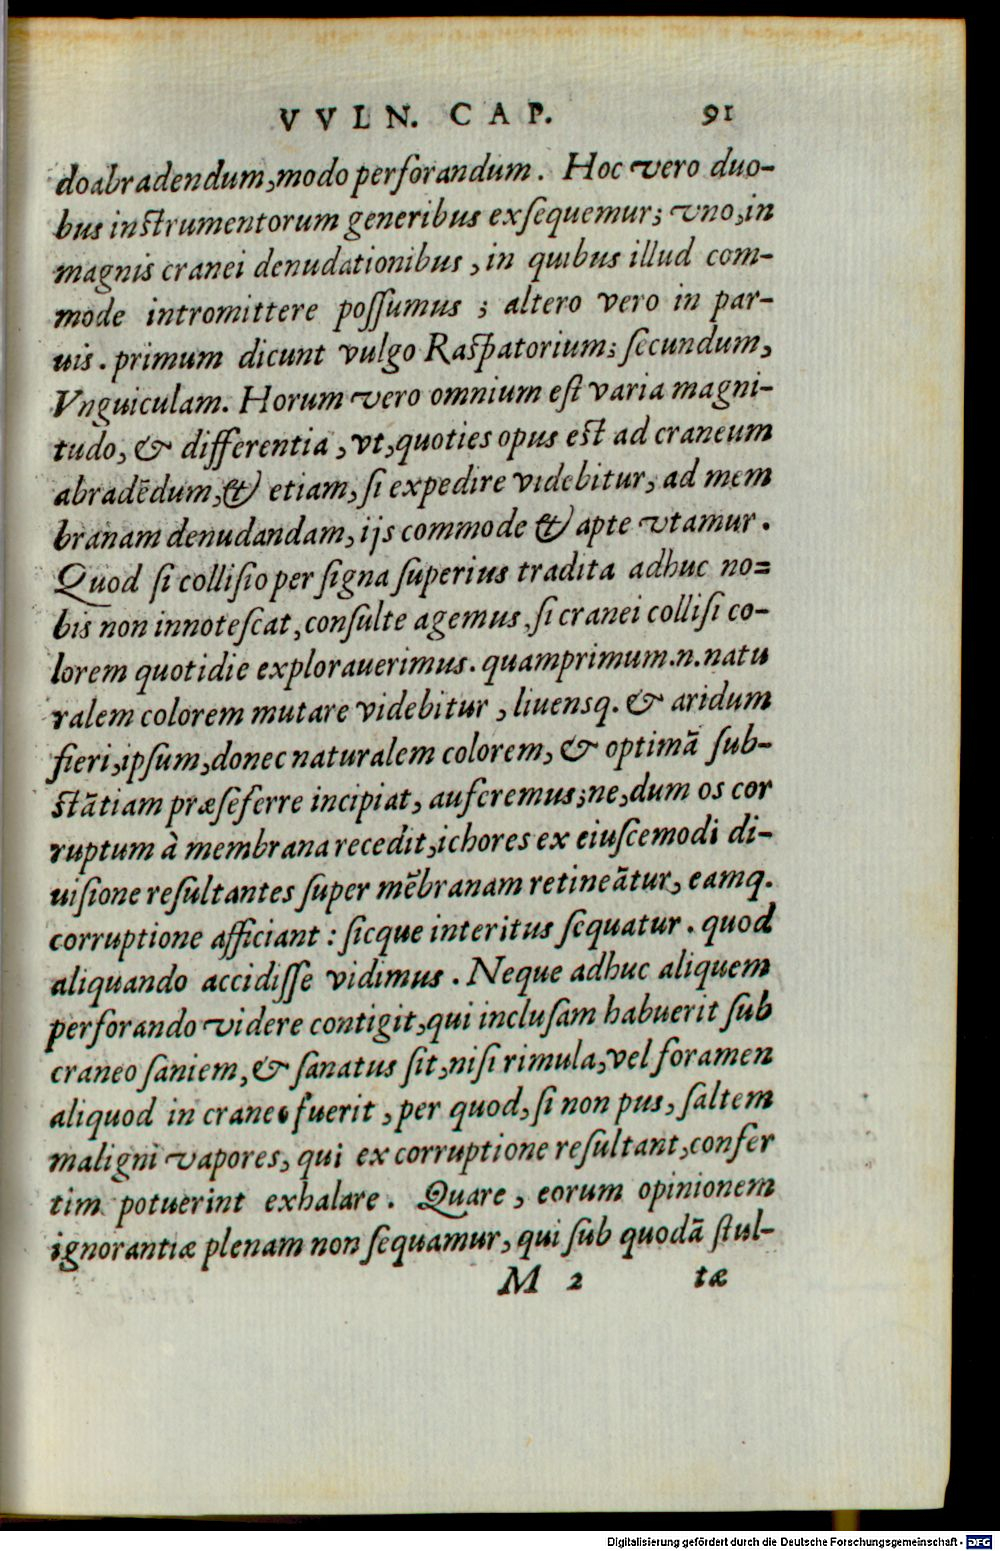 VVLN. CAP. 91
do abradendum, modo perforandum. Hoc vero duo-
bus instrumentorum generibus exsequemur; vno, in
magnis cranei denudationibus, in quibus illud com-
mode intromittere possumus; altero vero in par-
uis. primum dicunt vulgo Raspatorium; secundum,
Vnguiculam. Horum vero omnium est varia magni-
tudo, & differentia, vt, quoties opus est ad craneum
abradēdum, & etiam, si expedire videbitur, ad mem
branam denudandam, ijs commode & apte vtamur.
Quod si collisio per signa superius tradita adhuc no=
bis non innotescat, consulte agemus, si cranei collisi co-
lorem quotidie explorauerimus. quamprimum.n.natu
ralem colorem mutare videbitur, liuensq. & aridum
fieri, ipsum, donec naturalem colorem, & optimā sub-
stātiam præseferre incipiat, auferemus; ne, dum os cor
ruptum à membrana recedit, ichores ex eiuscemodi di-
uisione resultantes super mēbranam retineātur, eamq.
corruptione afficiant: sicque interitus sequatur. quod
aliquando accidisse vidimus. Neque adhuc aliquem
perforando videre contigit, qui inclusam habuerit sub
craneo saniem, & sanatus sit, nisi rimula, vel foramen
aliquod in craneo fuerit, per quod, si non pus, saltem
maligni vapores, qui ex corruptione resultant, confer
tim potuerint exhalare. Quare, eorum opinionem
ignorantiæ plenam non sequamur, qui sub quodā stul-
M 2 tæ
Digitalisierung gefördert durch die Deutsche Forschungsgemeinschaft - DFG